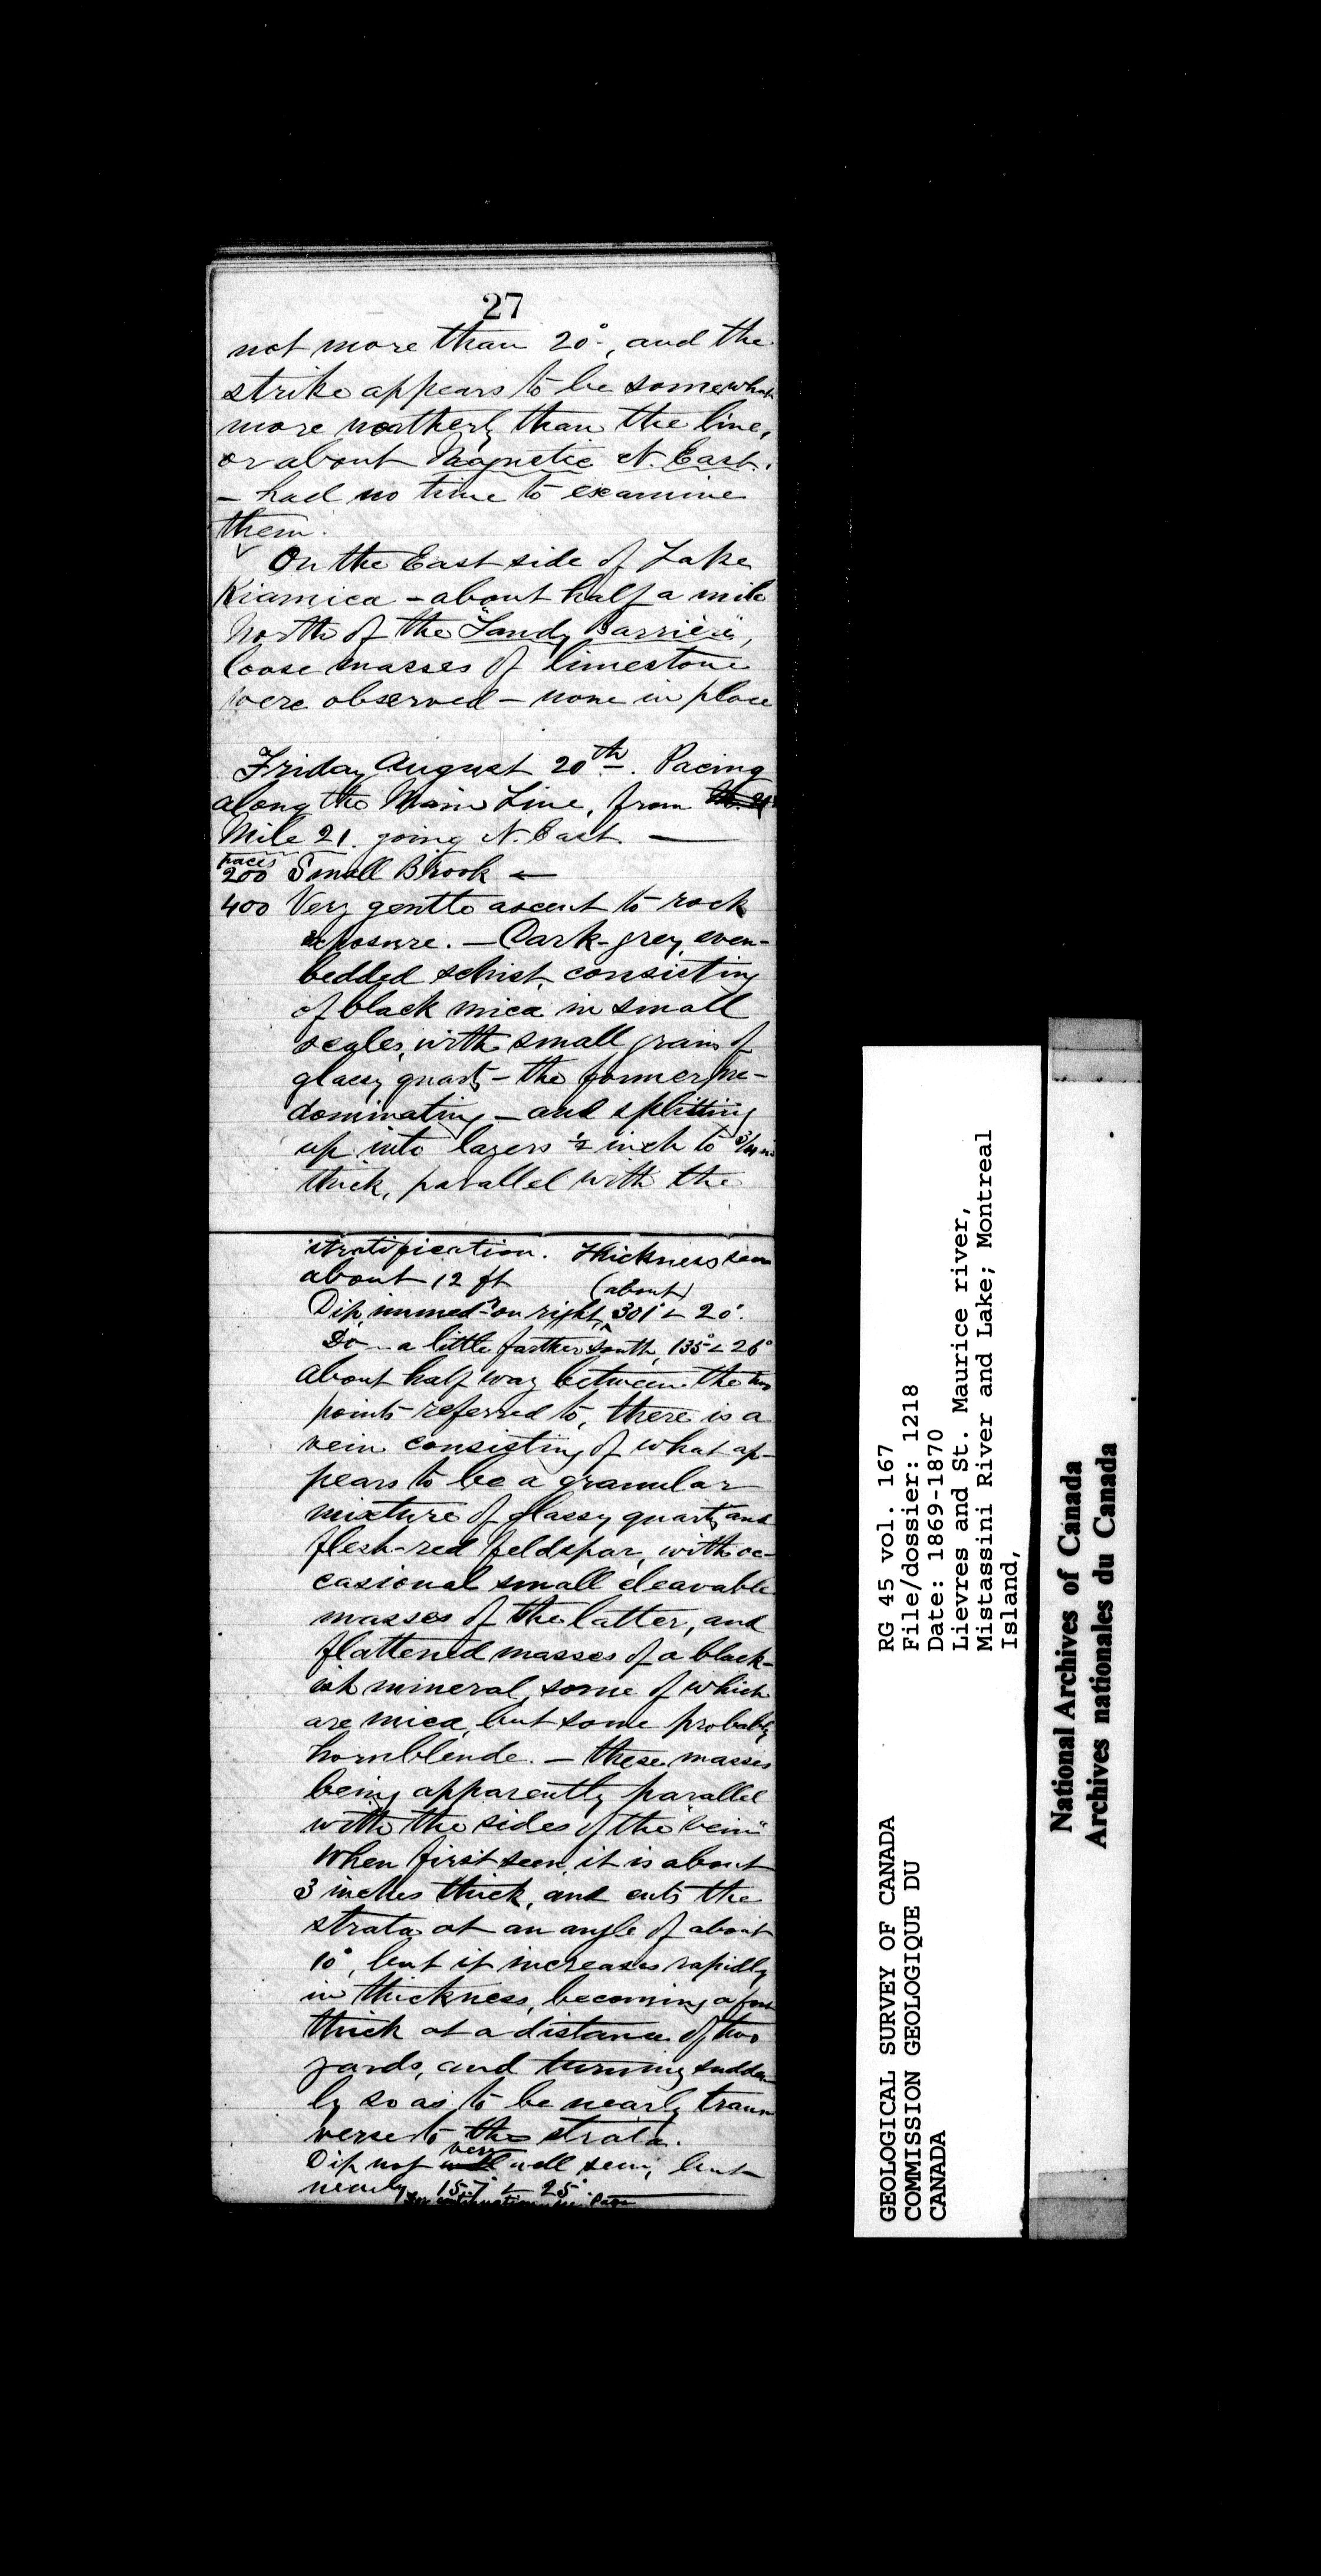 27
not more than 20°, and the
strike appears to be somewhat
more northerly than the line,
or about Magnetic N. East.
- had no time to examine
them.
On the East side of Lake
Kiamica - about half a mile
North of the "Sandy Barrière",
loose masses of limestone
were observed - none in place
Friday August 20th. Pacing
along the Main Line, from
Mile 21. going N. East. —
paces
200 Small Brook ←
400 Very gentle ascent to rock
exposure. — Dark-grey, even-
bedded schist, consisting
of black mica in small
scales, with small grains of
glassy quartz - the former pre-
dominating - and splitting
up into layers ½ inch to ¾ in
thick, parallel with the
stratification. Thickness seen
about 12 ft
(about)
Dip, immed.ly on right, 301° ∠ 20°.
Do — a little farther south, 135° ∠ 26°
About half way between the two
points referred to, there is a
vein consisting of what ap-
pears to be a granular
mixture of glassy quartz and
flesh-red feldspar, with oc-
casional small cleavable
masses of the latter, and
flattened masses of a black-
ish mineral, some of which
are mica, but some probably
hornblende. — these masses
being apparently parallel
with the sides of the "vein"
When first seen, it is about
3 inches thick, and cuts the
strata at an angle of about
10°, but it increases rapidly
in thickness, becoming a foot
thick at a distance of two
yards, and turning sudden-
ly so as to be nearly trans-
verse to the strata.
very
Dip not well seen, but
nearly 157° ∠ 25°
GEOLOGICAL SURVEY OF CANADA
COMMISSION GEOLOGIQUE DU
CANADA
RG 45 vol. 167
File/dossier: 1218
Date: 1869-1870
Lievres and St. Maurice river,
Mistassini River and Lake; Montreal
Island,
National Archives of Canada
Archives nationales du Canada